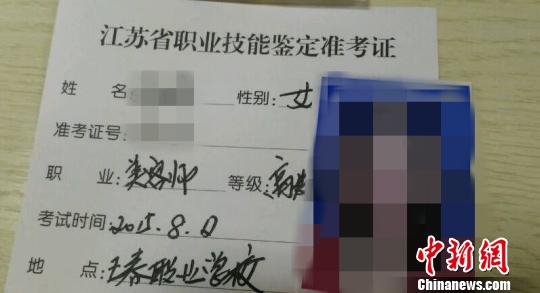 江苏省职业技能鉴定准考证
姓 名: 性别: 女
准考证号:
职 业: 美容师 等级: 高级
考试时间: 2015.8.
地 点: 王春职业学校
中新网
Chinanews.com